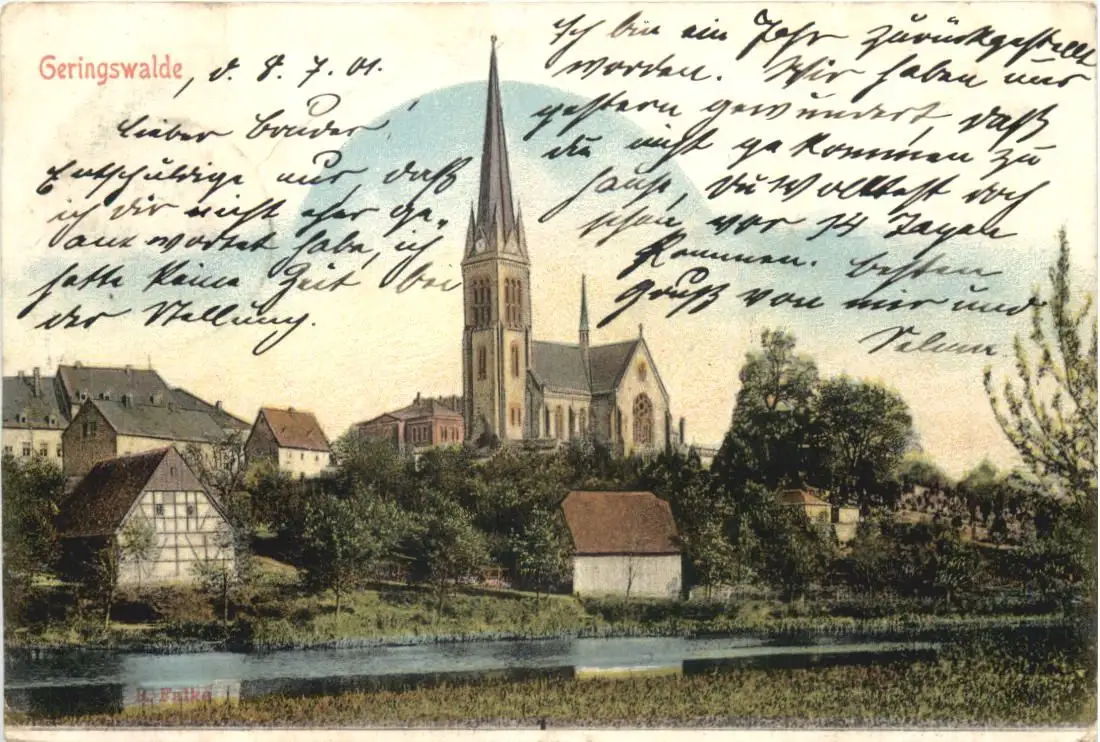 Geringswalde
, d. 8. 7. 01.
Lieber Bruder,
Entschuldige nur, daß
ich dir nicht eher ge„
antwortet habe, ich
hatte keine Zeit bei
der Stellung.
Ich bin ein Jahr zurückgestellt
worden. Wir haben uns
gestern gewundert, daß
du nicht gekommen zu
, Du wolltest doch
schon vor 14 Tagen
kommen. besten
Gruß von mir und
R. Falke